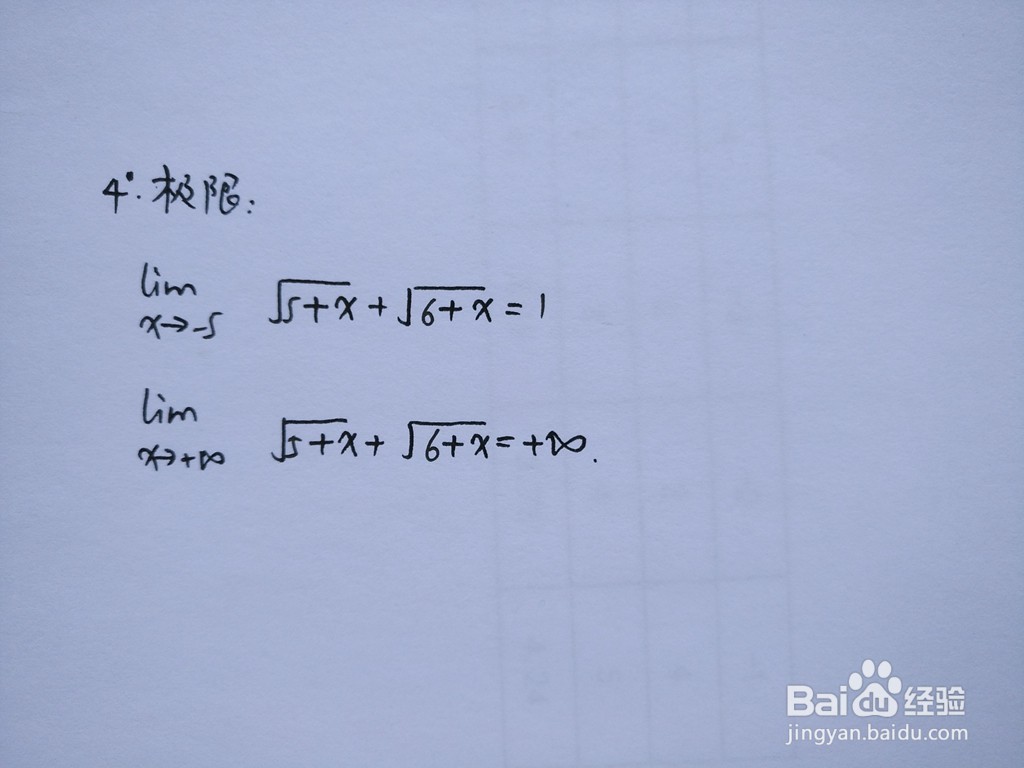 4°. 极限:
lim x→-5 √5+x + √6+x = 1
lim x→+∞ √5+x + √6+x = +∞.
Bai du 经验
jingyan.baidu.com